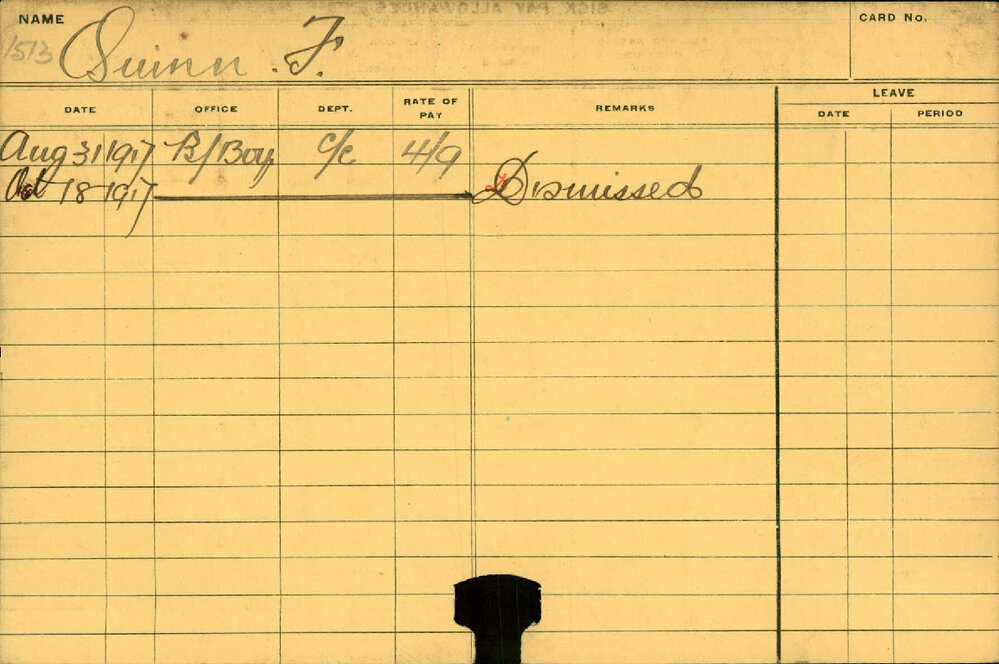 NAME
CARD No.
1513 Quinn . F.
DATE OFFICE DEPT. RATE OF PAY REMARKS LEAVE
DATE PERIOD
Aug 31 1917 B/Boy C/C 4/9
Oct 18 1917 Dismissed